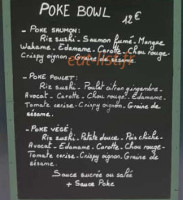 POKE BOWL
12€
- POKE SAUMON:
Riz sushi - Saumon fumé - Mangue
Wakame - Edamame - Carotte - Chou rouge -
Crispy oignon - Graine de sésame.
- POKE POULET:
Riz sushi - Poulet citron gingembre -
Avocat - Carotte - Chou rouge - Edamame -
Tomate cerise - Crispy oignon - Graine de
sésame.
- POKE VÉGÉ:
Riz sushi - Patate douce - Pois chiche -
Avocat - Edamame - Carotte - Chou rouge -
Tomate cerise - Crispy oignon - Graine de
sésame.
SAUCE SUCRÉE OU SALÉE
+ SAUCE POKE